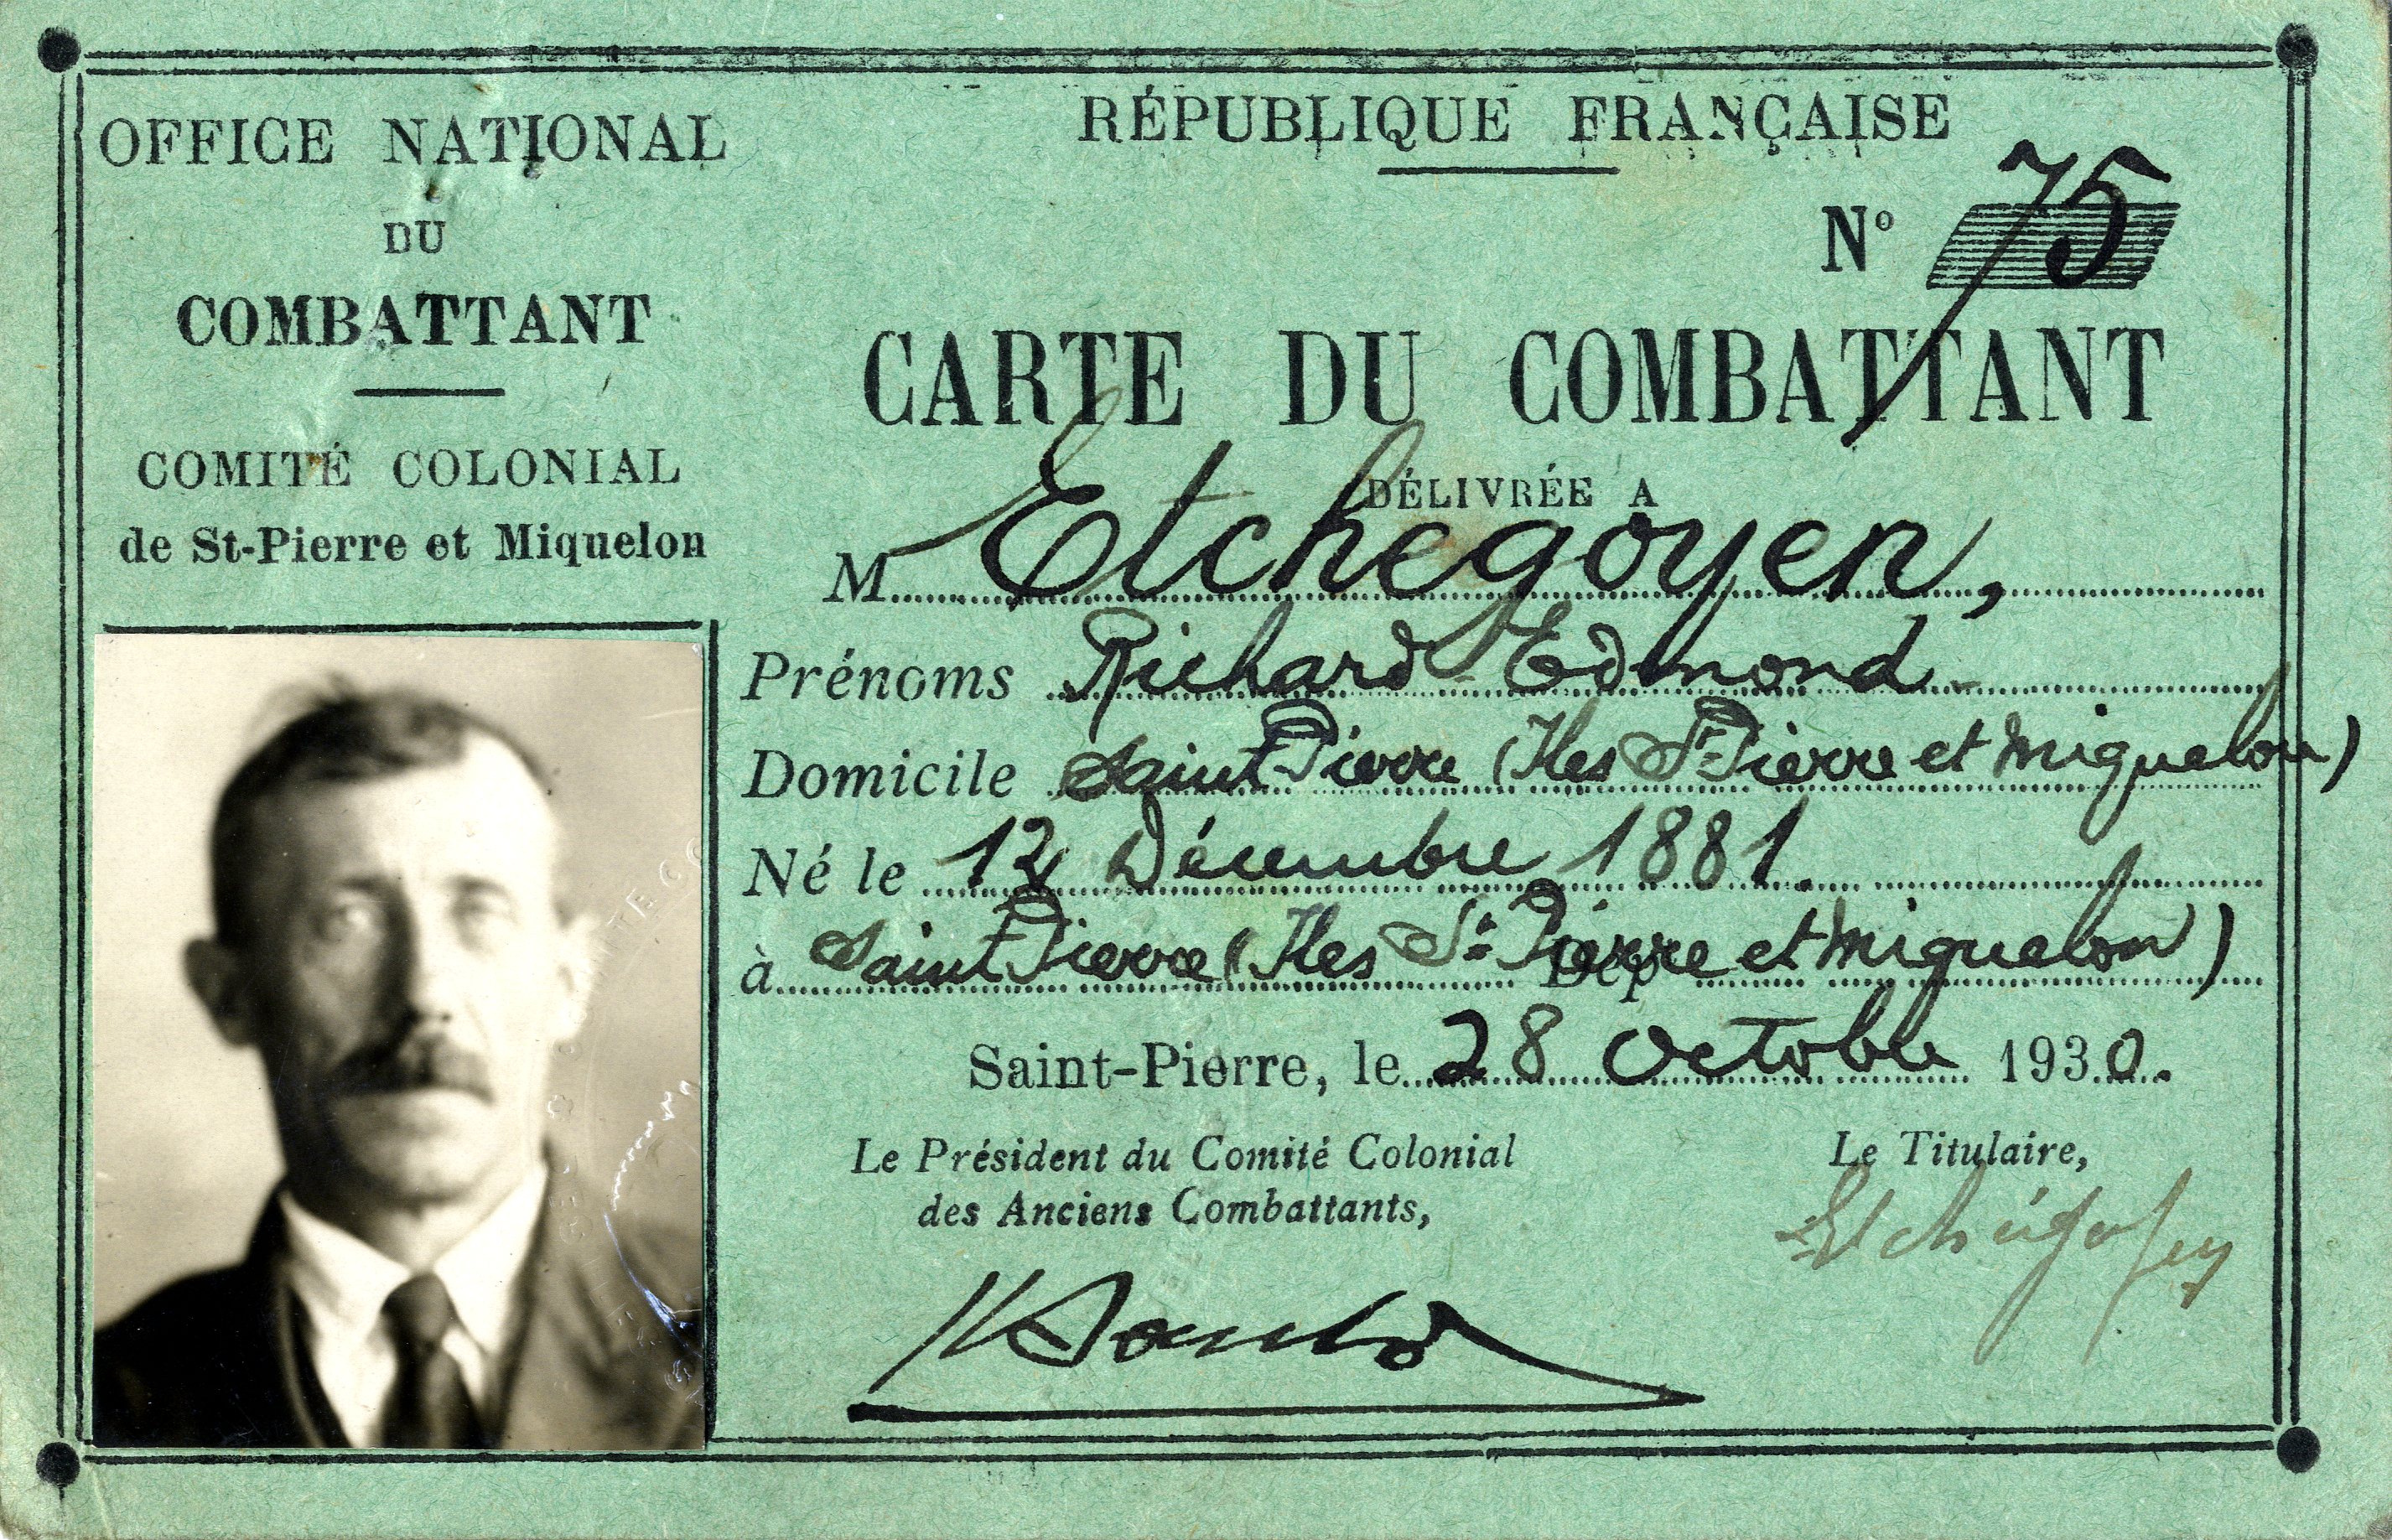 OFFICE NATIONAL
DU
COMBATTANT
COMITÉ COLONIAL
de St-Pierre et Miquelon
RÉPUBLIQUE FRANÇAISE
Nº 75
CARTE DU COMBATTANT
DÉLIVRÉE A
M Etchegoyen,
Prénoms Richard Edmond
Domicile Saint-Pierre (Iles St-Pierre et Miquelon)
Né le 12 Décembre 1881.
à Saint Pierre (Iles St-Pierre et Miquelon) Dép
Saint-Pierre, le 28 Octobre 1930.
Le Président du Comité Colonial
des Anciens Combattants,
Le Titulaire,
Etchégoyen